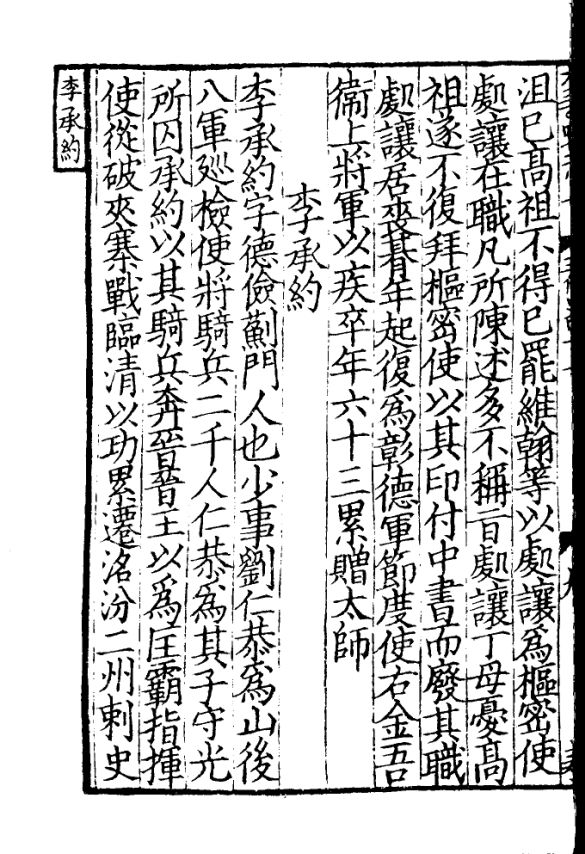 沮已高祖不得已罷維翰等以處讓爲樞密使
處讓在職凡所陳述多不稱旨處讓丁母憂高
祖遂不復拜樞密使以其印付中書而廢其職
處讓居喪朞年起復爲彰德軍節度使右金吾
衞上將軍以疾卒年六十三累贈太師
李承約
李承約字德儉薊門人也少事劉仁恭爲山後
八軍廵檢使將騎兵二千人仁恭爲其子守光
所囚承約以其騎兵奔晉晉王以爲匡霸指揮
使從破夾寨戰臨清以功累遷洺汾二州刺史
李承約